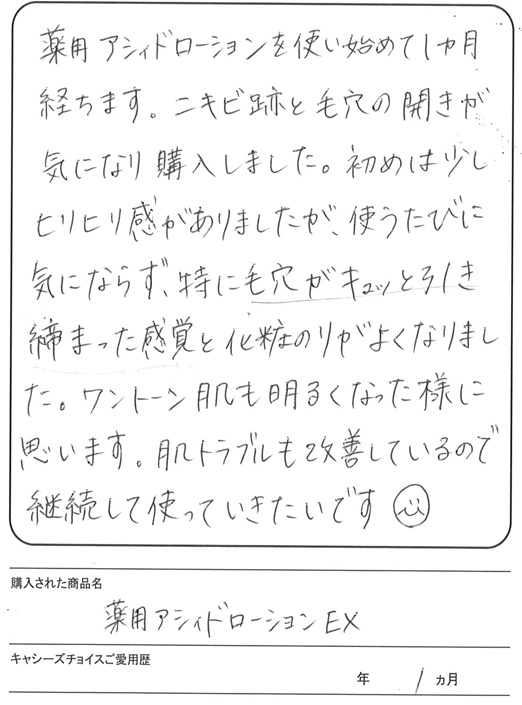 薬用アシィドローションを使い始めて1カ月
経ちます。ニキビ跡と毛穴の開きが
気になり購入しました。初めは少し
ヒリヒリ感がありましたが、使うたびに
気にならず、特に毛穴がキュッと引き
締まった感覚と化粧のりがよくなりまし
た。ワントーン肌も明るくなった様に
思います。肌トラブルも改善しているので
継続して使っていきたいです
購入された商品名
薬用アシィドローションEX
キャシーズチョイスご愛用歴
年 1ヵ月